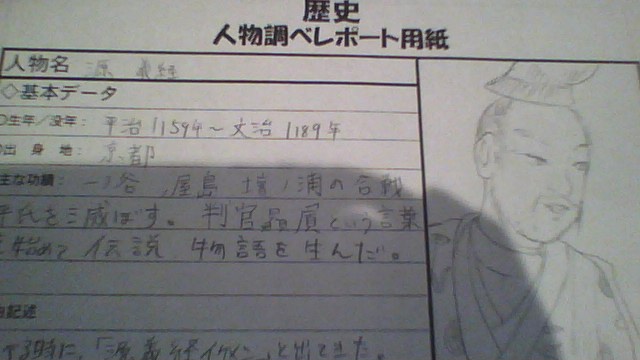 歴史
人物調べレポート用紙
人物名 源 義経
◇基本データ
○生年/没年: 平治11594〜文治1189年
出身地: 京都
主な功績: 一ノ谷、屋島 壇ノ浦の合戦
平氏を滅ぼす。判官贔屓という言葉
始めて伝説 物語を生んだ。
由記述
る時に、「源義経イケメン」と出てきた。